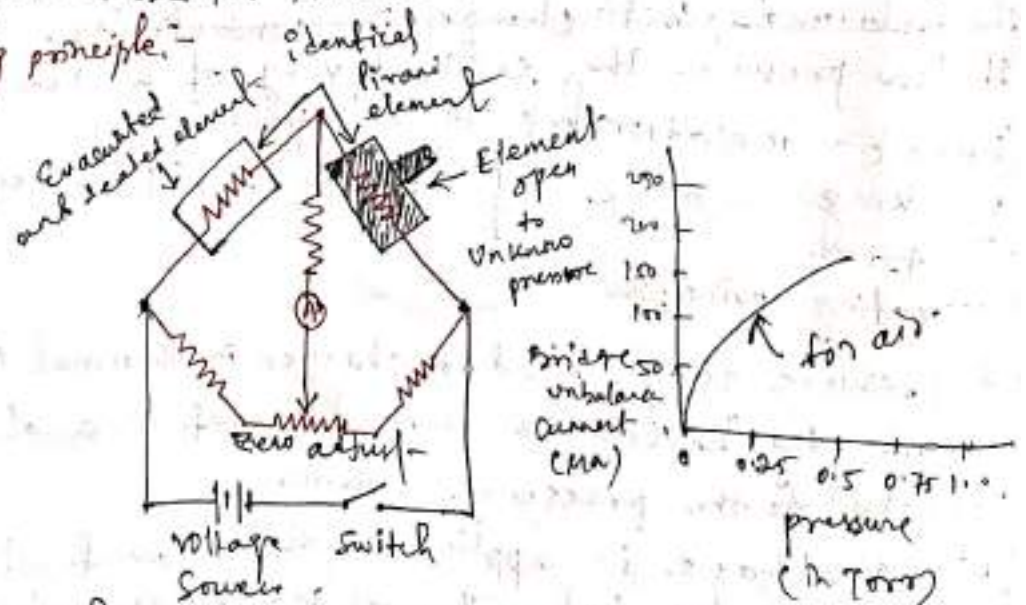 principle:-
identical
Pirani
element
Evacuated
and sealed element
Element
open
to
Unknown
pressure
Zero adjust
Voltage
Source
Switch
250
200
150
100
50
Bridge
unbalance
Current
(MA)
for air
0
0.25
0.5
0.75
1.0
pressure
(in Torr)